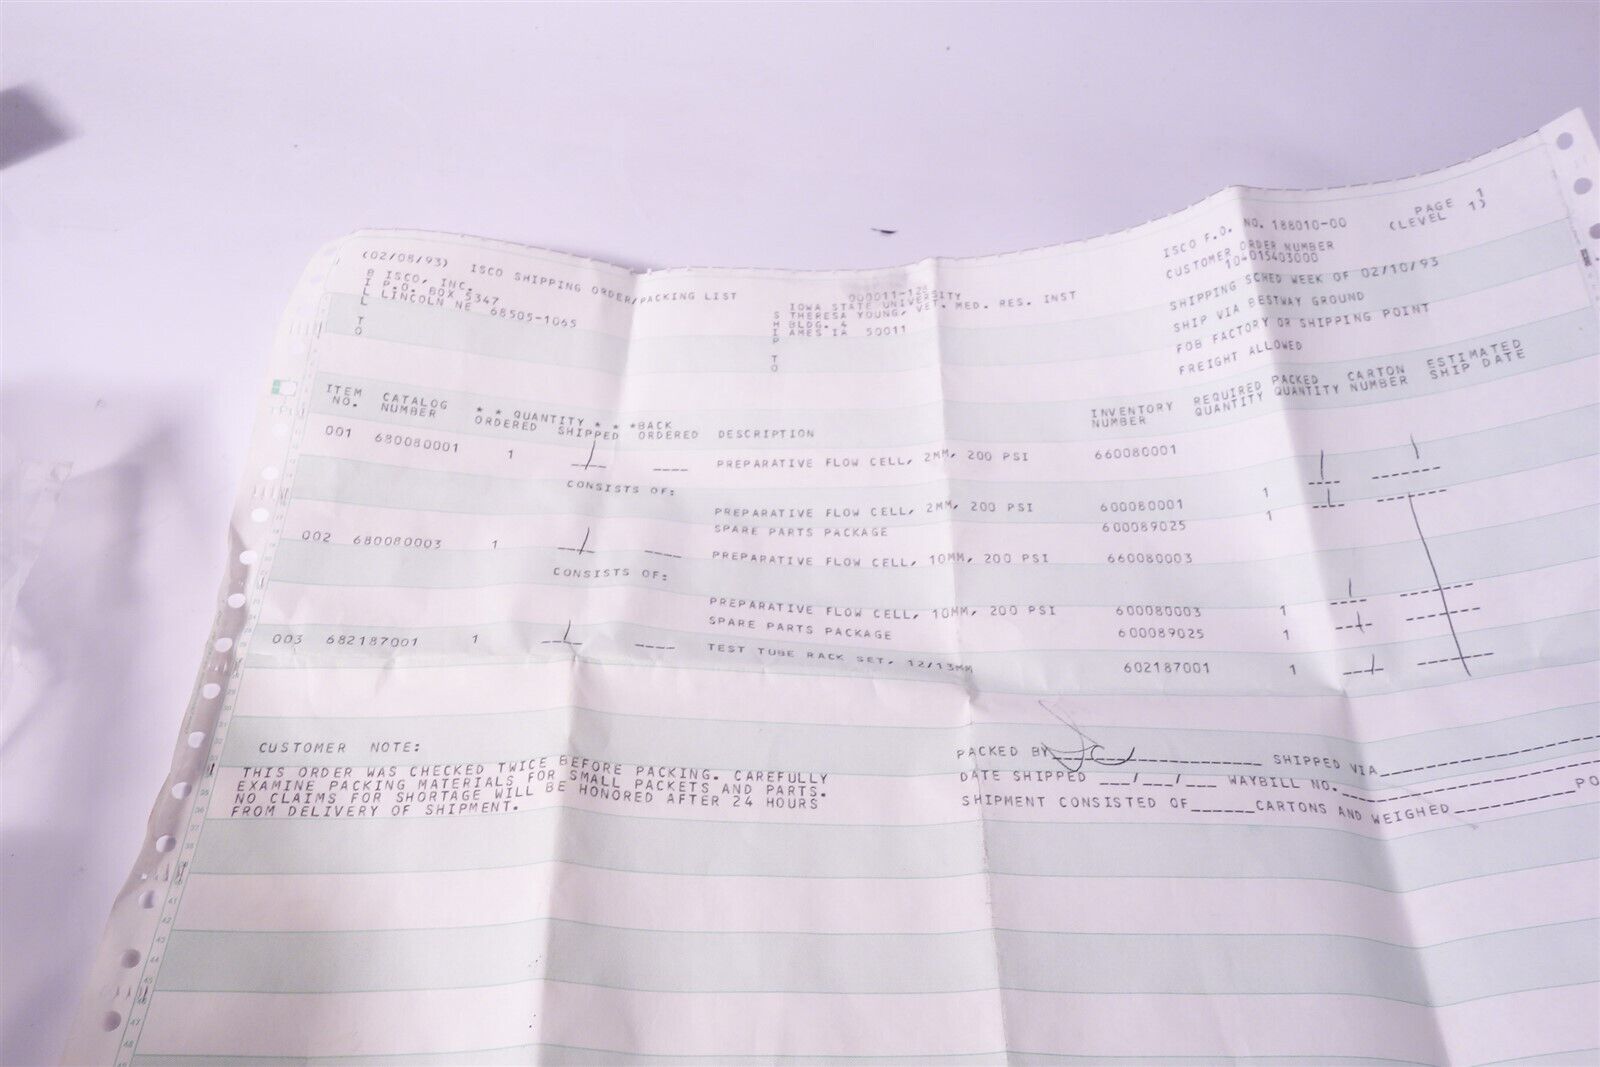 (02/08/93) ISCO SHIPPING ORDER/PACKING LIST
ISCO F.O. NO. 188010-00 PAGE 1
(LEVEL 1)
BILL TO
ISCO, INC.
P.O. BOX 5347
LINCOLN NE 68505-1065
SHIP TO
IOWA STATE UNIVERSITY
THERESA YOUNG, VET. MED. RES. INST
BLDG. 4
AMES IA 50011
CUSTOMER ORDER NUMBER
104015403000
SHIPPING SCHED WEEK OF 02/10/93
SHIP VIA BESTWAY GROUND
FOB FACTORY OR SHIPPING POINT
FREIGHT ALLOWED
ITEM CATALOG * * QUANTITY * * *BACK INVENTORY REQUIRED PACKED CARTON ESTIMATED
NO. NUMBER ORDERED SHIPPED ORDERED DESCRIPTION NUMBER QUANTITY QUANTITY NUMBER SHIP DATE
001 680080001 1 1 ---- PREPARATIVE FLOW CELL, 2MM, 200 PSI 660080001
CONSISTS OF:
PREPARATIVE FLOW CELL, 2MM, 200 PSI 600080001 1 1 1
SPARE PARTS PACKAGE 600089025 1 1
002 680080003 1 1 ---- PREPARATIVE FLOW CELL, 10MM, 200 PSI 660080003
CONSISTS OF:
PREPARATIVE FLOW CELL, 10MM, 200 PSI 600080003 1 1
SPARE PARTS PACKAGE 600089025 1 1
003 682187001 1 1 ---- TEST TUBE RACK SET, 12/13MM 602187001 1 1
CUSTOMER NOTE:
THIS ORDER WAS CHECKED TWICE BEFORE PACKING. CAREFULLY
EXAMINE PACKING MATERIALS FOR SMALL PACKETS AND PARTS.
NO CLAIMS FOR SHORTAGE WILL BE HONORED AFTER 24 HOURS
FROM DELIVERY OF SHIPMENT.
PACKED BY SHIPPED VIA
DATE SHIPPED ___/___/___ WAYBILL NO.
SHIPMENT CONSISTED OF______CARTONS AND WEIGHED